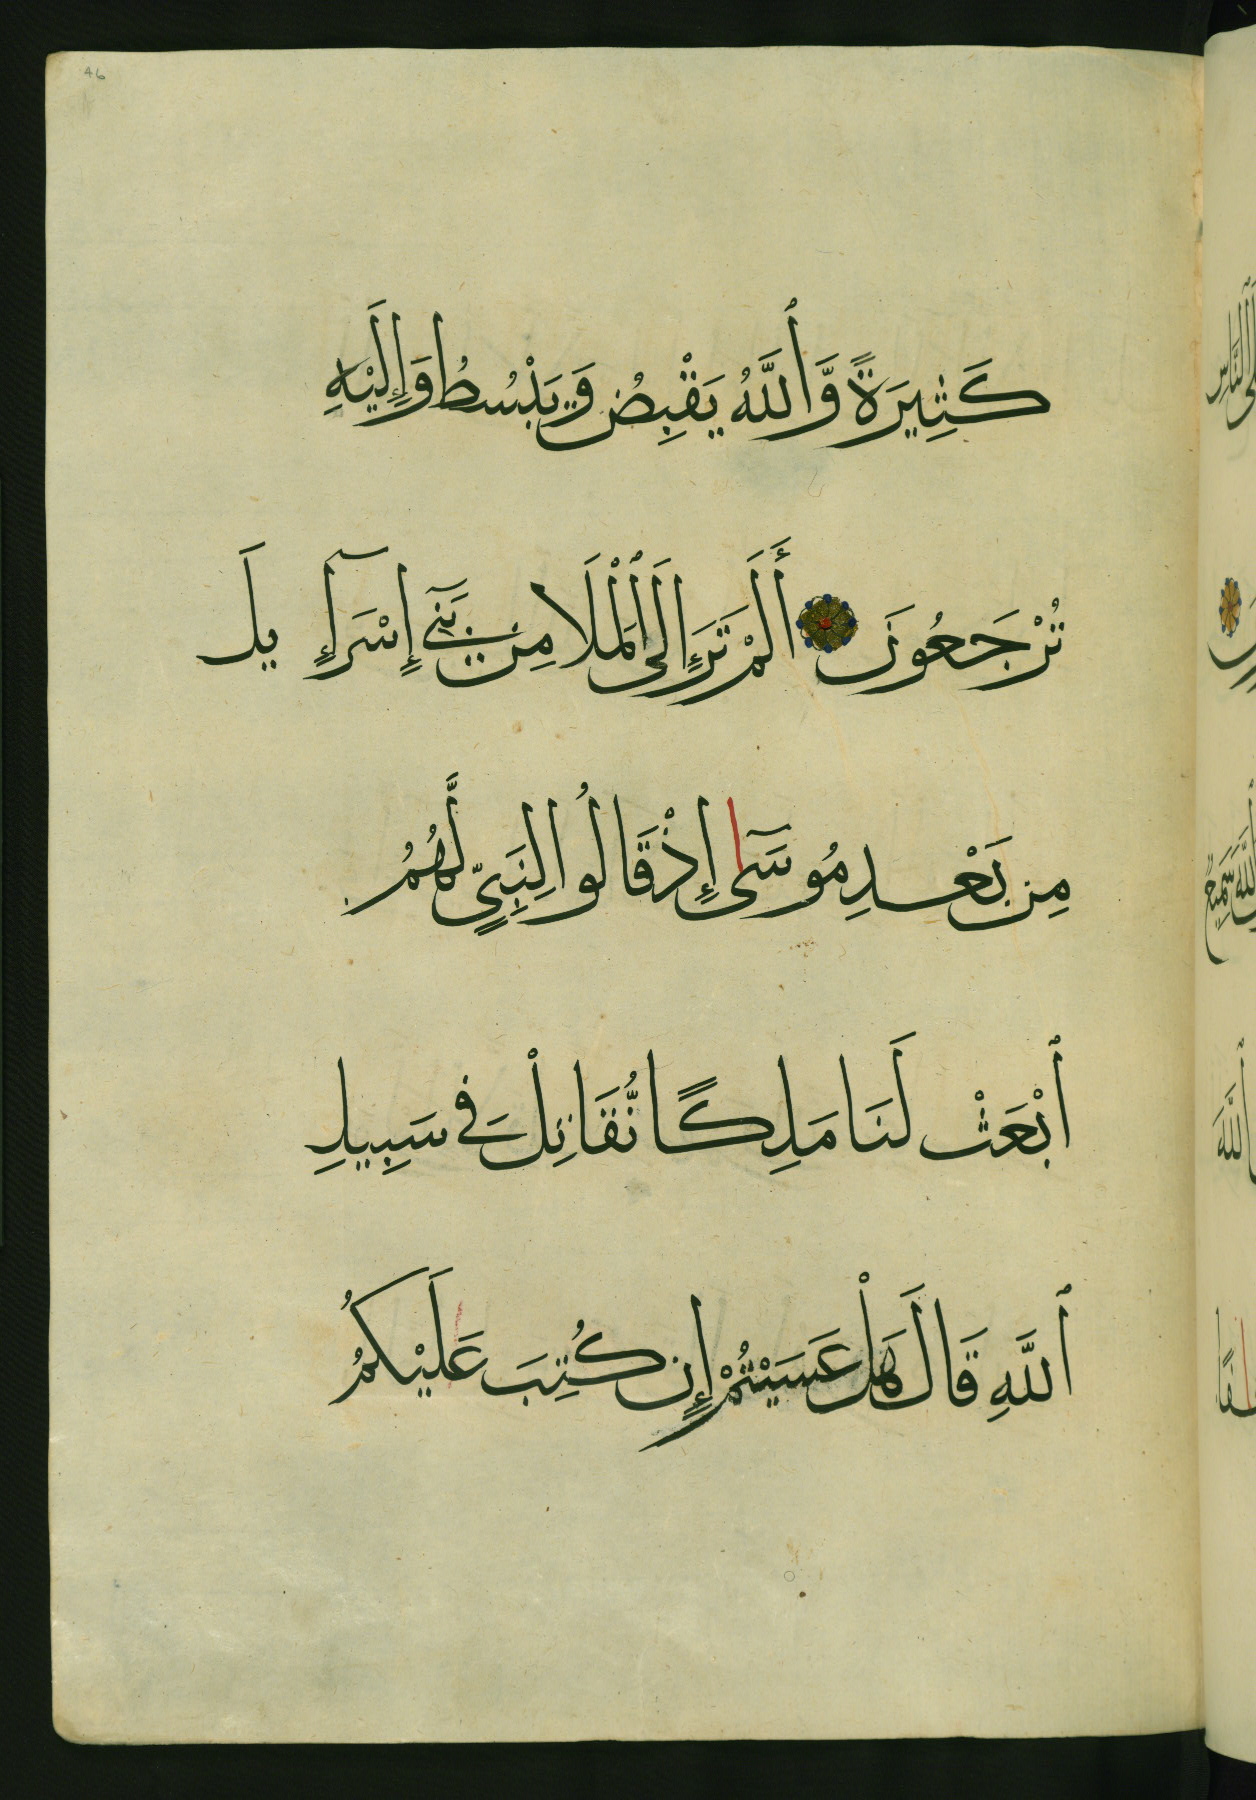 46
كَثِيرَةً وَّٱللَّهُ يَقْبِضُ وَيَبْسُطُ وَإِلَيْهِ
تُرْجَعُونَ أَلَمْ تَرَ إِلَى ٱلْمَلَا مِن بَنِيٓ إِسْرَآءِيلَ
مِن بَعْدِ مُوسَىٓ إِذْ قَالُوا لِنَبِيٍّ لَّهُمُ
ٱبْعَثْ لَنَا مَلِكًا نُّقَاتِلْ فِي سَبِيلِ
ٱللَّهِ قَالَ هَلْ عَسَيْتُمْ إِن كُتِبَ عَلَيْكُمُ